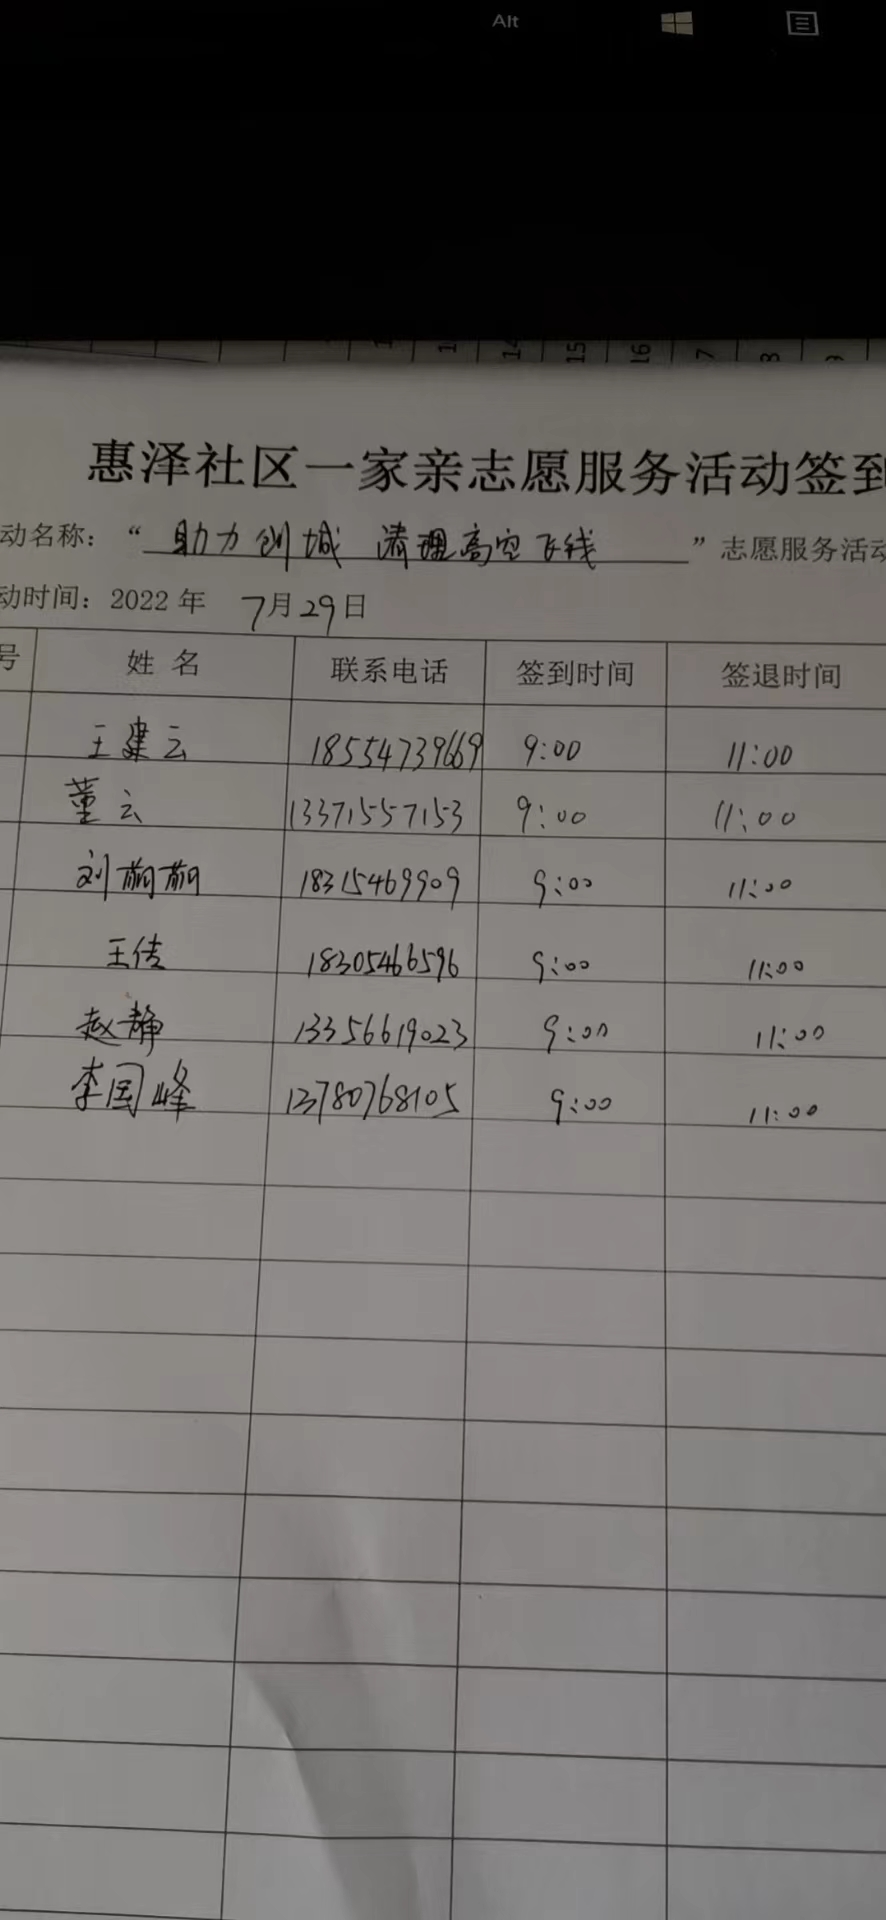 Alt
14 15 16 7 8
惠泽社区一家亲志愿服务活动签到
动名称：“助力创城 清理高空飞线”志愿服务活动
动时间：2022年 7月29日
号 姓 名 联系电话 签到时间 签退时间
王建云 18554739669 9:00 11:00
董云 13371557153 9:00 11:00
刘 18315469909 9:00 11:00
王传 18305466596 9:00 11:00
赵静 13356619023 9:00 11:00
李国峰 13780768105 9:00 11:00